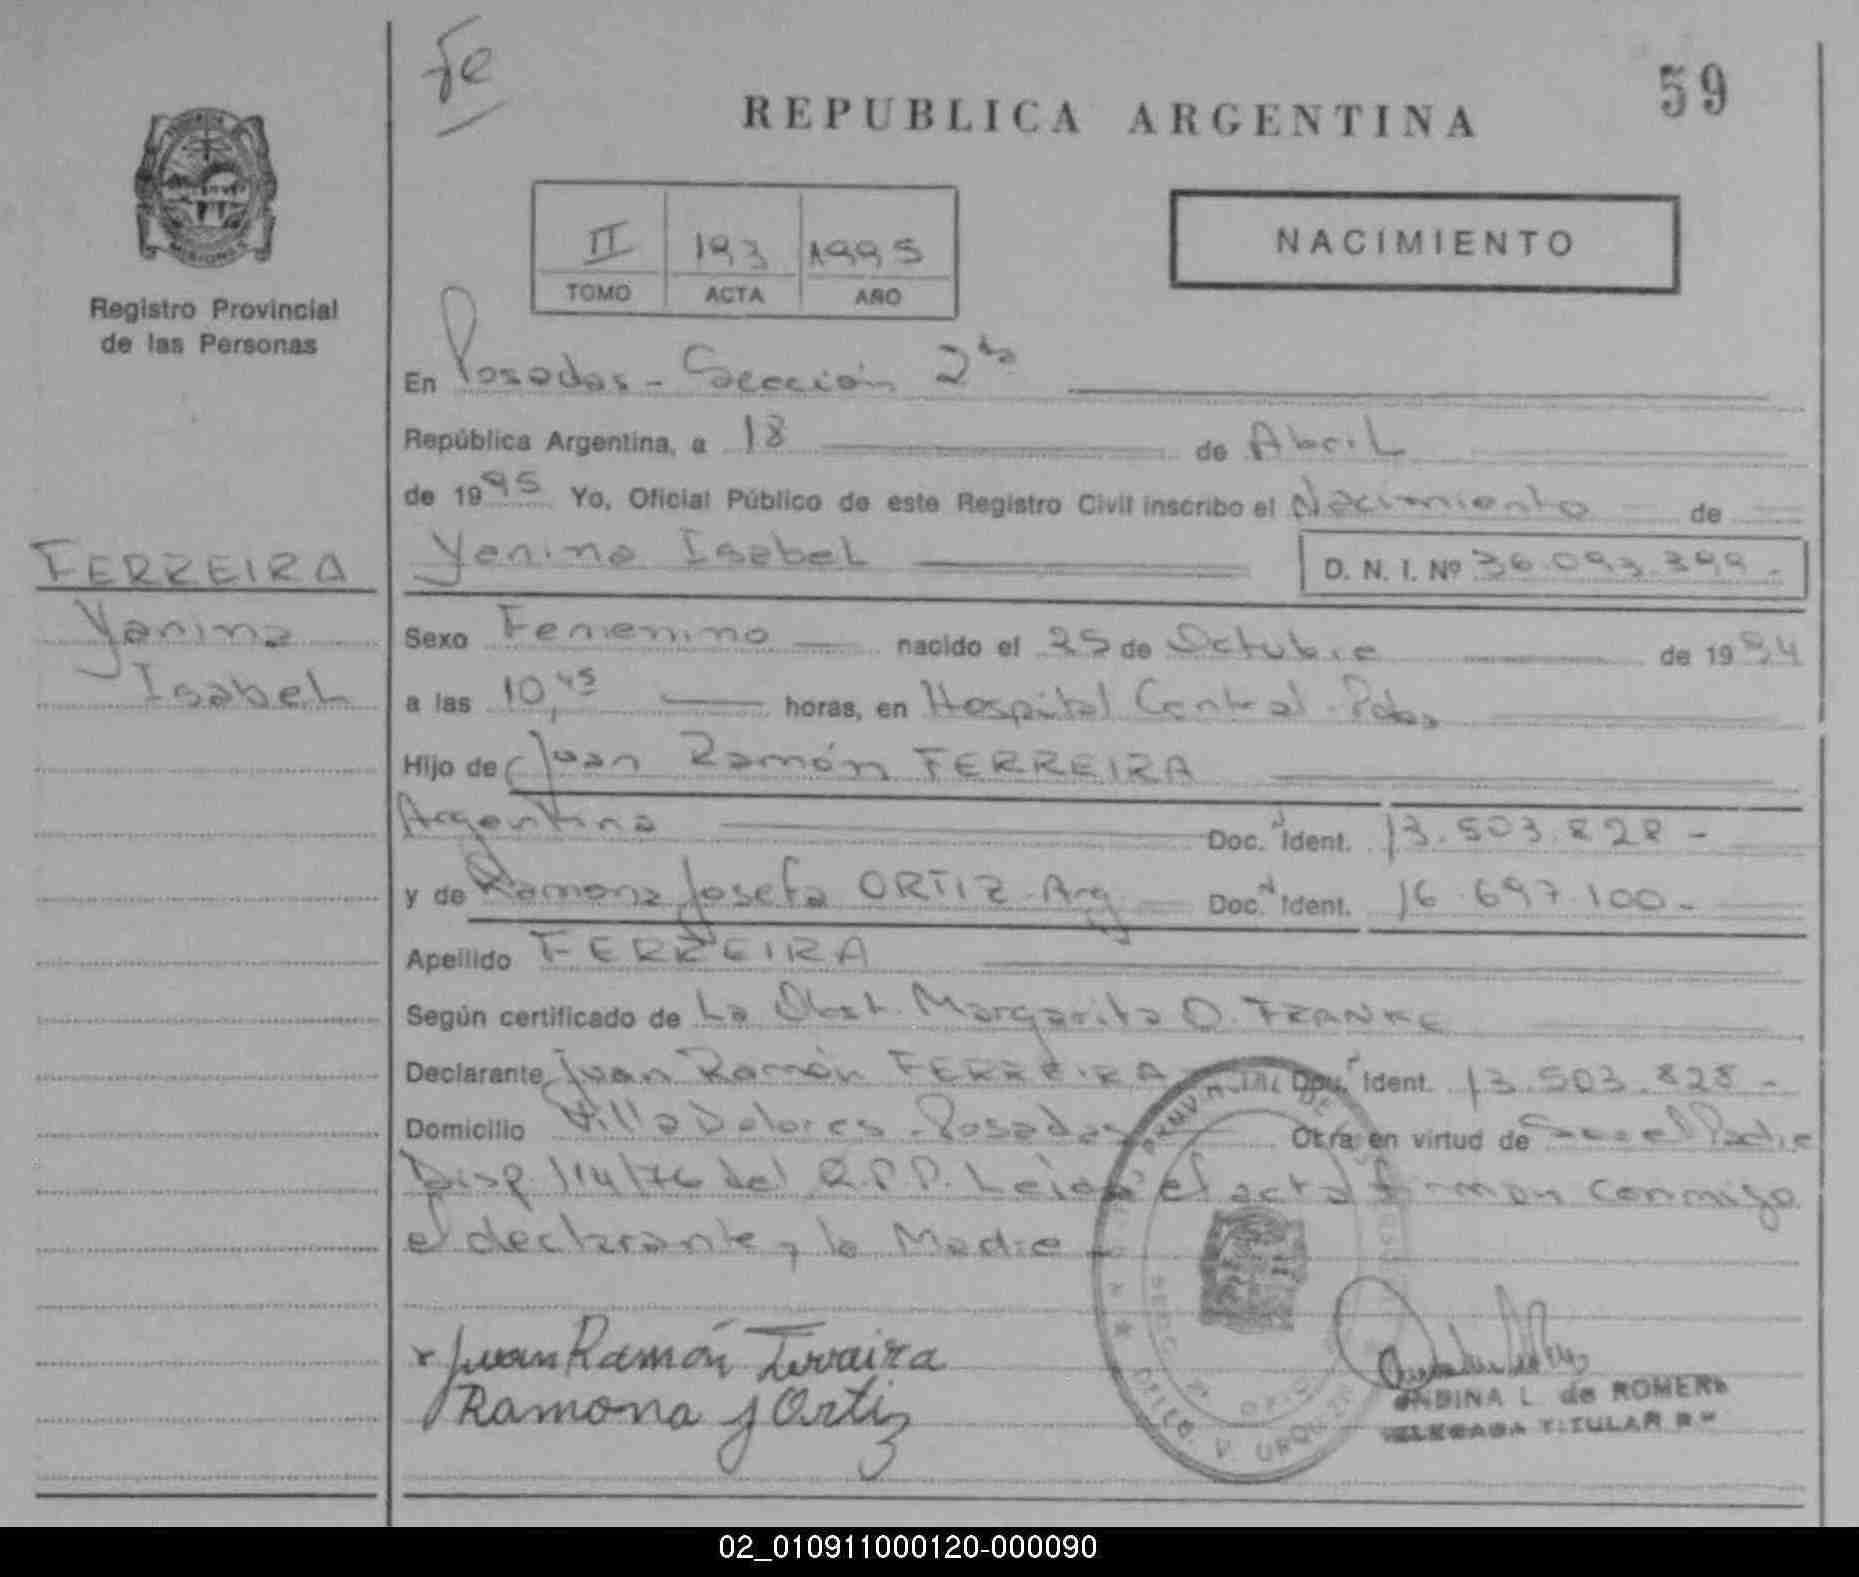 Fe
59
REPUBLICA ARGENTINA
II 193 1995
TOMO ACTA AÑO
NACIMIENTO
Registro Provincial
de las Personas
En Posadas - Sección 2da
República Argentina, a 18 de Abril
de 1995 Yo, Oficial Público de este Registro Civil inscribo el Nacimiento de
FERREIRA
Yanina Isabel D. N. I. Nº 36.093.399.-
Yanina
Sexo Femenino nacido el 25 de Octubre de 1994
Isabel
a las 10,45 horas, en Hospital Central - Pdas
Hijo de Juan Ramón FERREIRA
Argentina Doc. Ident. 13.503.828-
y de Ramona Josefa ORTIZ Arg Doc. Ident. 16.697.100-
Apellido FERREIRA
Según certificado de La Obst. Margarita O. FRANKE
Declarante Juan Ramón FERREIRA Doc. Ident. 13.503.828-
Domicilio Villa Dolores - Posadas Obra en virtud de Ser el Padre
Disp. 114/76 del R.P.P. Leída el acta firman conmigo
el declarante y la Madre
x Juan Ramón Ferreira
Ramona J Ortiz
L. de ROMERO
TITULAR
02_010911000120-000090